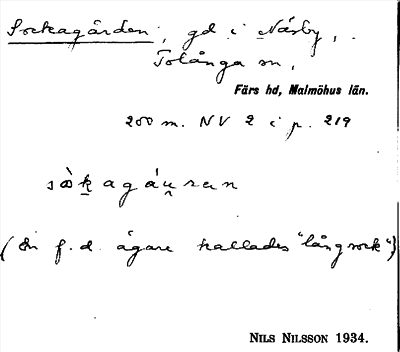 Sockagården, gd i Näsby,
Tolånga sn,
Färs hd, Malmöhus län.
200 m. NV 2 i p. 219
sòk̲agáu̯ran
(En f.d. ägare kallades "långsock")
NILS NILSSON 1934.